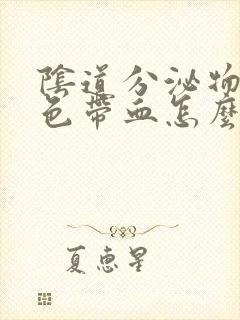 陰道分泌物
色帶血怎麼
夏惠星